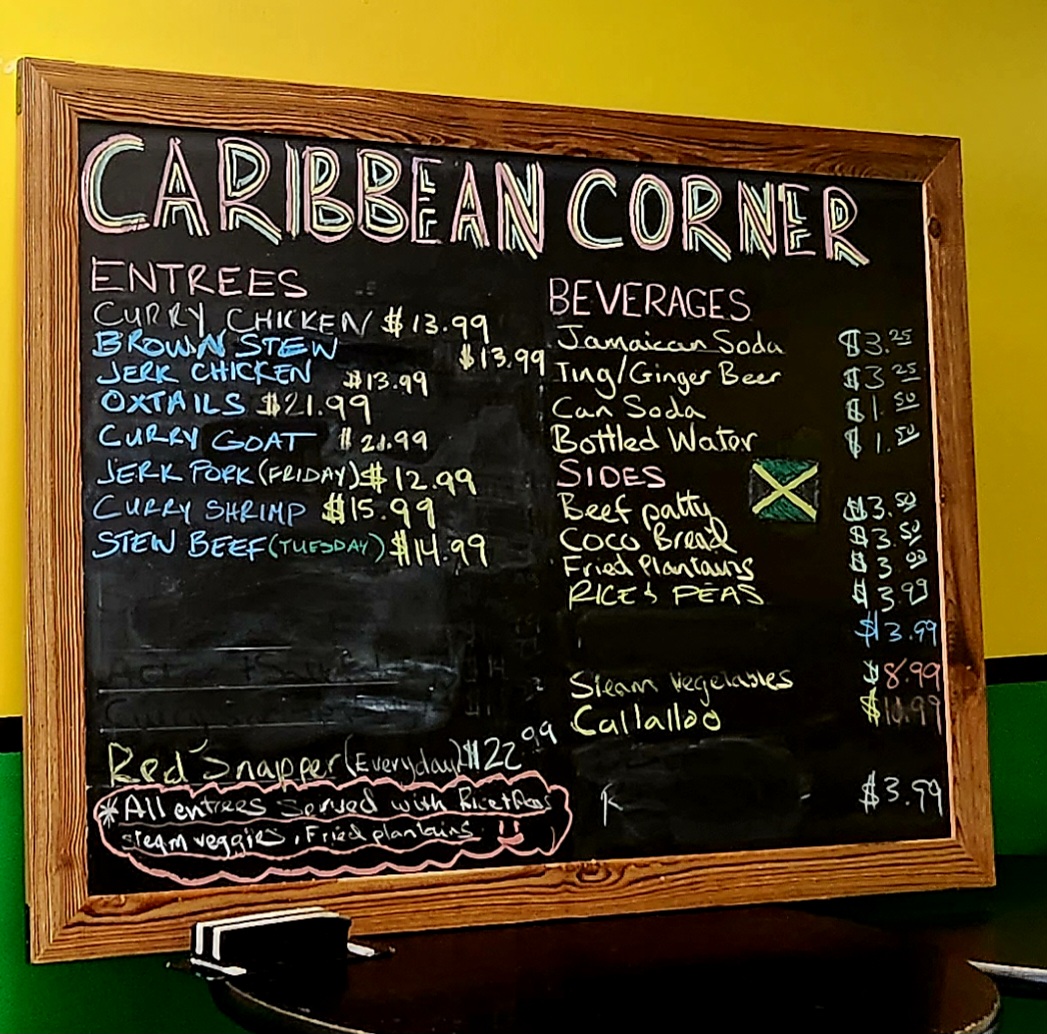 CARIBBEAN CORNER
ENTREES
CURRY CHICKEN $13.99
BROWN STEW $13.99
JERK CHICKEN $13.99
OXTAILS $21.99
CURRY GOAT $21.99
JERK PORK (FRIDAY) $12.99
CURRY SHRIMP $15.99
STEW BEEF (TUESDAY) $14.99
Red Snapper (Everyday) $22.99
*All entrees Served with Rice+Peas
steam veggies, Fried plantains
BEVERAGES
Jamaican Soda $3.25
Ting/Ginger Beer $3.25
Can Soda $1.50
Bottled Water $1.50
SIDES
Beef patty $3.50
Coco Bread $3.50
Fried Plantains
RICE & PEAS $3.99
$3.99
Steam Vegetables $8.99
Callalloo
$3.99